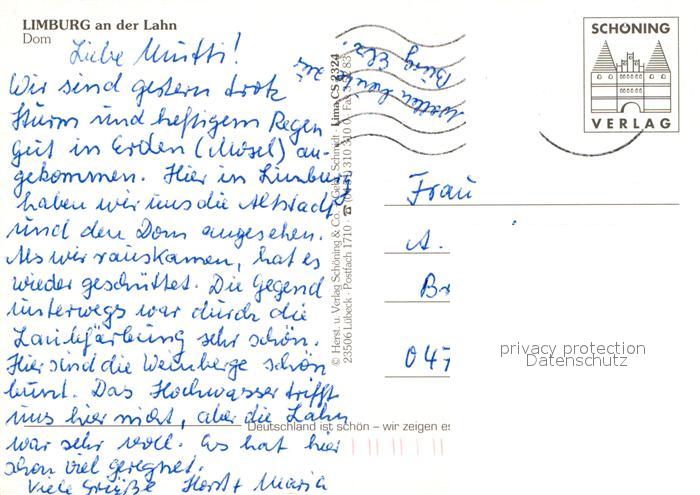 LIMBURG an der Lahn
Dom
Liebe Mutti!
Wir sind gestern trotz
Sturm und heftigem Regen
gut in Erden (Mosel) an-
gekommen. Hier in Limburg
haben wir uns die Altstadt
und den Dom angesehen.
Als wir rauskamen, hat es
wieder geschüttet. Die Gegend
unterwegs war durch die
Laubfärbung sehr schön.
Hier sind die Weinberge schön
bunt. Das Hochwasser trifft
uns hier nicht, aber die Lahn
war sehr voll. Es hat hier
schon viel geregnet.
Viele Grüße Horst + Maria
wollen heute zur
Burg Elz.
© Herst. u. Verlag Schöning & Co. + Gebr. Schmidt · Lima CS 2324
23506 Lübeck · Postfach 1710 · ☎ 310 310
Deutschland ist schön – wir zeigen es
SCHÖNING
VERLAG
Frau
A.
Br
047
privacy protection
Datenschutz